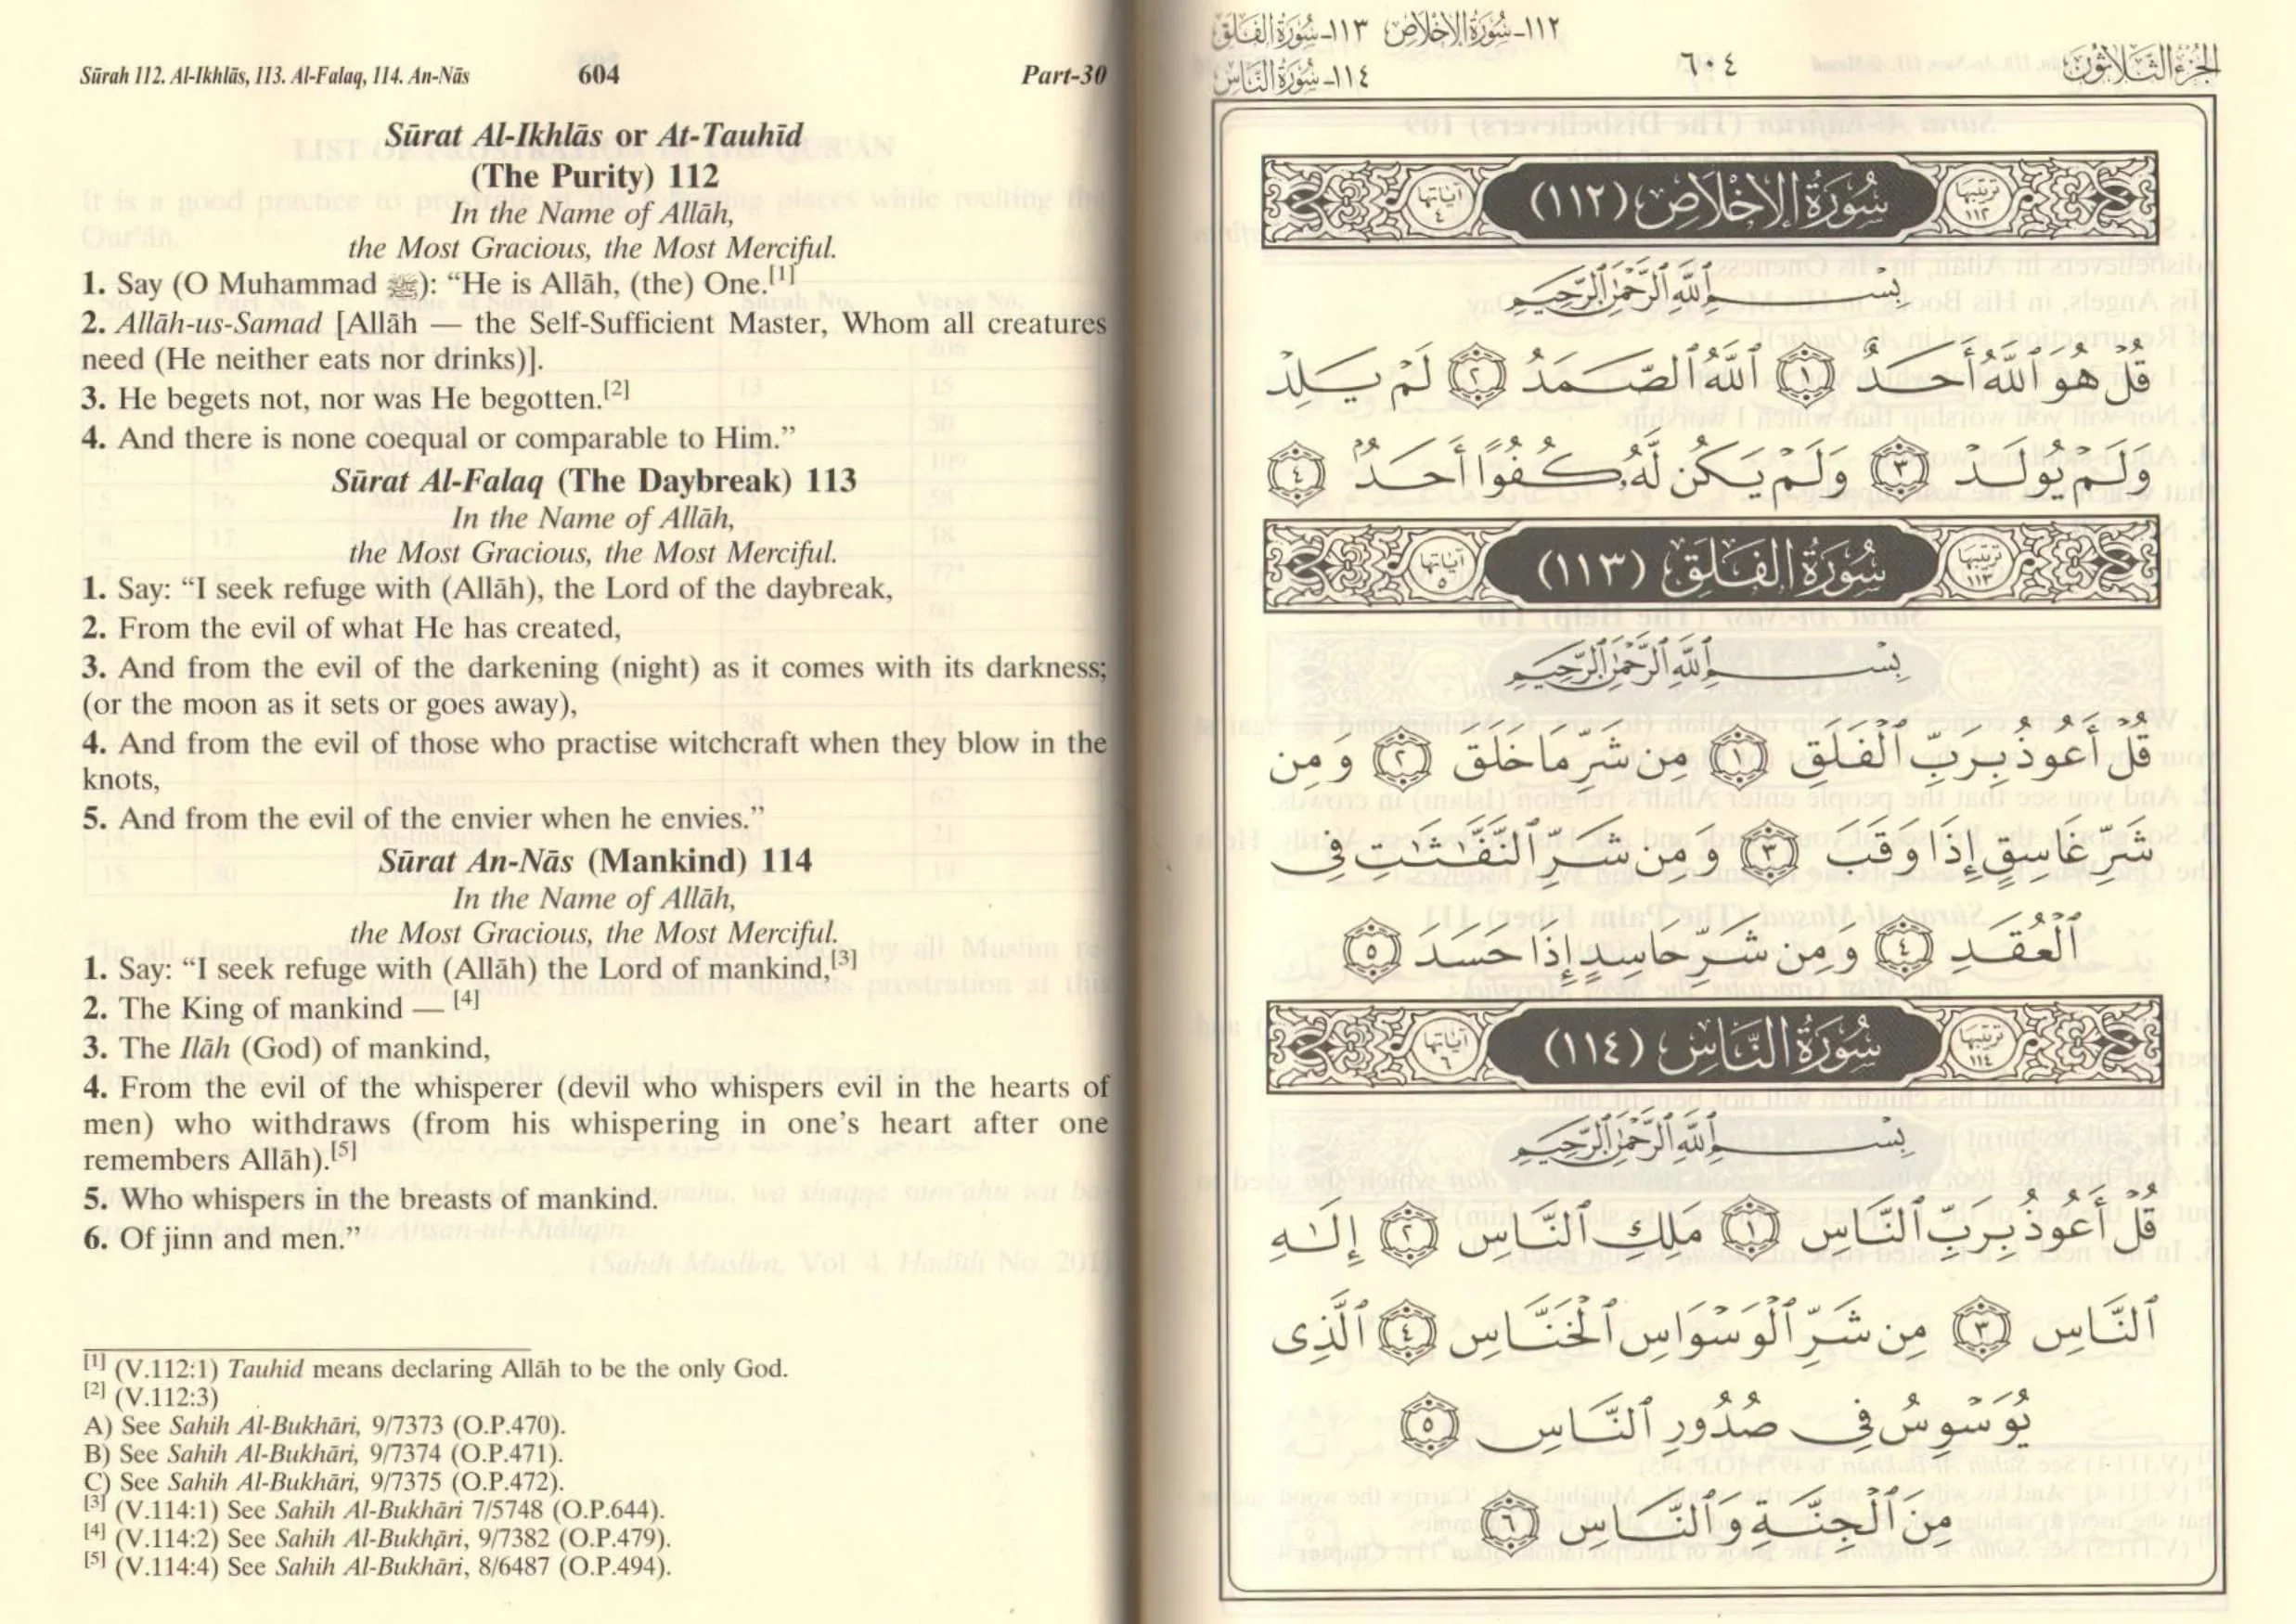 Sūrah 112. Al-Ikhlās, 113. Al-Falaq, 114. An-Nās 604 Part-30
Sūrat Al-Ikhlās or At-Tauhīd
(The Purity) 112
In the Name of Allāh,
the Most Gracious, the Most Merciful.
1. Say (O Muhammad ﷺ): “He is Allāh, (the) One.[1]
2. Allāh-us-Samad [Allāh — the Self-Sufficient Master, Whom all creatures
need (He neither eats nor drinks)].
3. He begets not, nor was He begotten.[2]
4. And there is none coequal or comparable to Him.”
Sūrat Al-Falaq (The Daybreak) 113
In the Name of Allāh,
the Most Gracious, the Most Merciful.
1. Say: “I seek refuge with (Allāh), the Lord of the daybreak,
2. From the evil of what He has created,
3. And from the evil of the darkening (night) as it comes with its darkness;
(or the moon as it sets or goes away),
4. And from the evil of those who practise witchcraft when they blow in the
knots,
5. And from the evil of the envier when he envies.”
Sūrat An-Nās (Mankind) 114
In the Name of Allāh,
the Most Gracious, the Most Merciful.
1. Say: “I seek refuge with (Allāh) the Lord of mankind,[3]
2. The King of mankind — [4]
3. The Ilāh (God) of mankind,
4. From the evil of the whisperer (devil who whispers evil in the hearts of
men) who withdraws (from his whispering in one’s heart after one
remembers Allāh).[5]
5. Who whispers in the breasts of mankind.
6. Of jinn and men.”
[1] (V.112:1) Tauhid means declaring Allāh to be the only God.
[2] (V.112:3)
A) See Sahih Al-Bukhāri, 9/7373 (O.P.470).
B) See Sahih Al-Bukhāri, 9/7374 (O.P.471).
C) See Sahih Al-Bukhāri, 9/7375 (O.P.472).
[3] (V.114:1) See Sahih Al-Bukhāri 7/5748 (O.P.644).
[4] (V.114:2) See Sahih Al-Bukhāri, 9/7382 (O.P.479).
[5] (V.114:4) See Sahih Al-Bukhāri, 8/6487 (O.P.494).
١١٢-سُورَةُ الإِخْلَاصِ ١١٣-سُورَةُ الفَلَقِ
الجُزْءُ الثَّلَاثُونَ ٦٠٤ ١١٤-سُورَةُ النَّاسِ
ترتيبها ١١٢ سُورَةُ الإِخْلَاصِ (١١٢) آياتها ٤
بِسْمِ ٱللَّهِ ٱلرَّحْمَٰنِ ٱلرَّحِيمِ
قُلْ هُوَ ٱللَّهُ أَحَدٌ ١ ٱللَّهُ ٱلصَّمَدُ ٢ لَمْ يَلِدْ
وَلَمْ يُولَدْ ٣ وَلَمْ يَكُن لَّهُۥ كُفُوًا أَحَدٌۢ ٤
ترتيبها ١١٣ سُورَةُ الفَلَقِ (١١٣) آياتها ٥
بِسْمِ ٱللَّهِ ٱلرَّحْمَٰنِ ٱلرَّحِيمِ
قُلْ أَعُوذُ بِرَبِّ ٱلْفَلَقِ ١ مِن شَرِّ مَا خَلَقَ ٢ وَمِن
شَرِّ غَاسِقٍ إِذَا وَقَبَ ٣ وَمِن شَرِّ ٱلنَّفَّٰثَٰتِ فِى
ٱلْعُقَدِ ٤ وَمِن شَرِّ حَاسِدٍ إِذَا حَسَدَ ٥
ترتيبها ١١٤ سُورَةُ النَّاسِ (١١٤) آياتها ٦
بِسْمِ ٱللَّهِ ٱلرَّحْمَٰنِ ٱلرَّحِيمِ
قُلْ أَعُوذُ بِرَبِّ ٱلنَّاسِ ١ مَلِكِ ٱلنَّاسِ ٢ إِلَٰهِ
ٱلنَّاسِ ٣ مِن شَرِّ ٱلْوَسْوَاسِ ٱلْخَنَّاسِ ٤ ٱلَّذِى
يُوَسْوِسُ فِى صُدُورِ ٱلنَّاسِ ٥
مِنَ ٱلْجِنَّةِ وَٱلنَّاسِ ٦